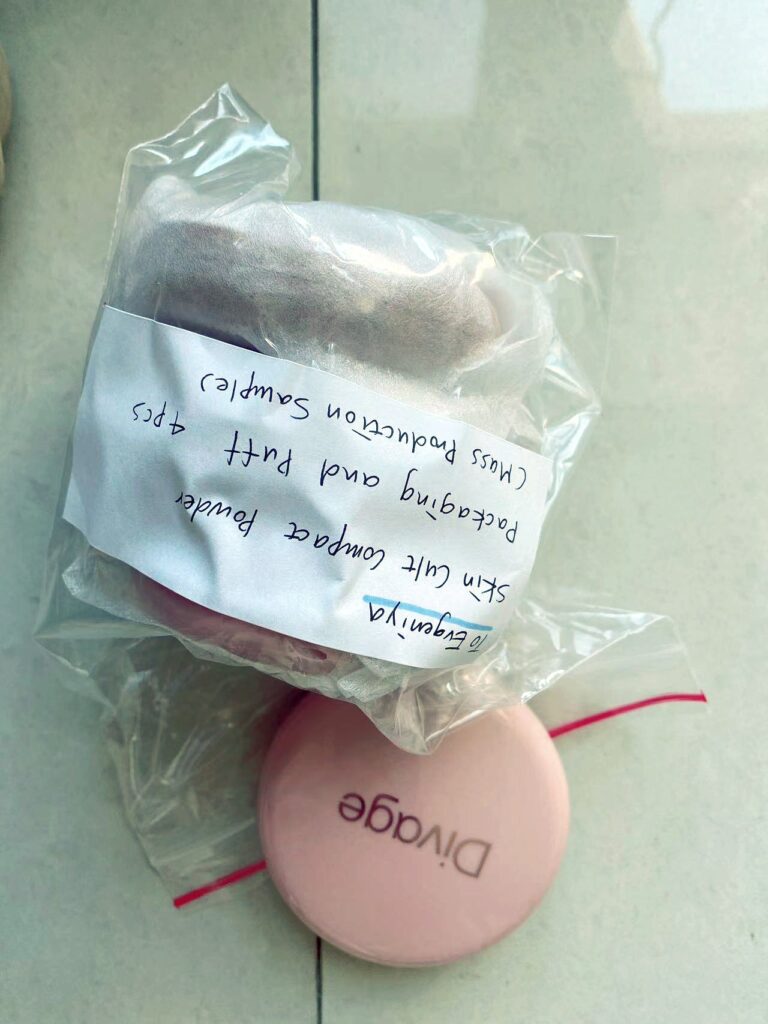 To Evgeniya
Skin Cult Compact Powder
Packaging and Puff 4pcs
(Mass Production Samples)
Divage